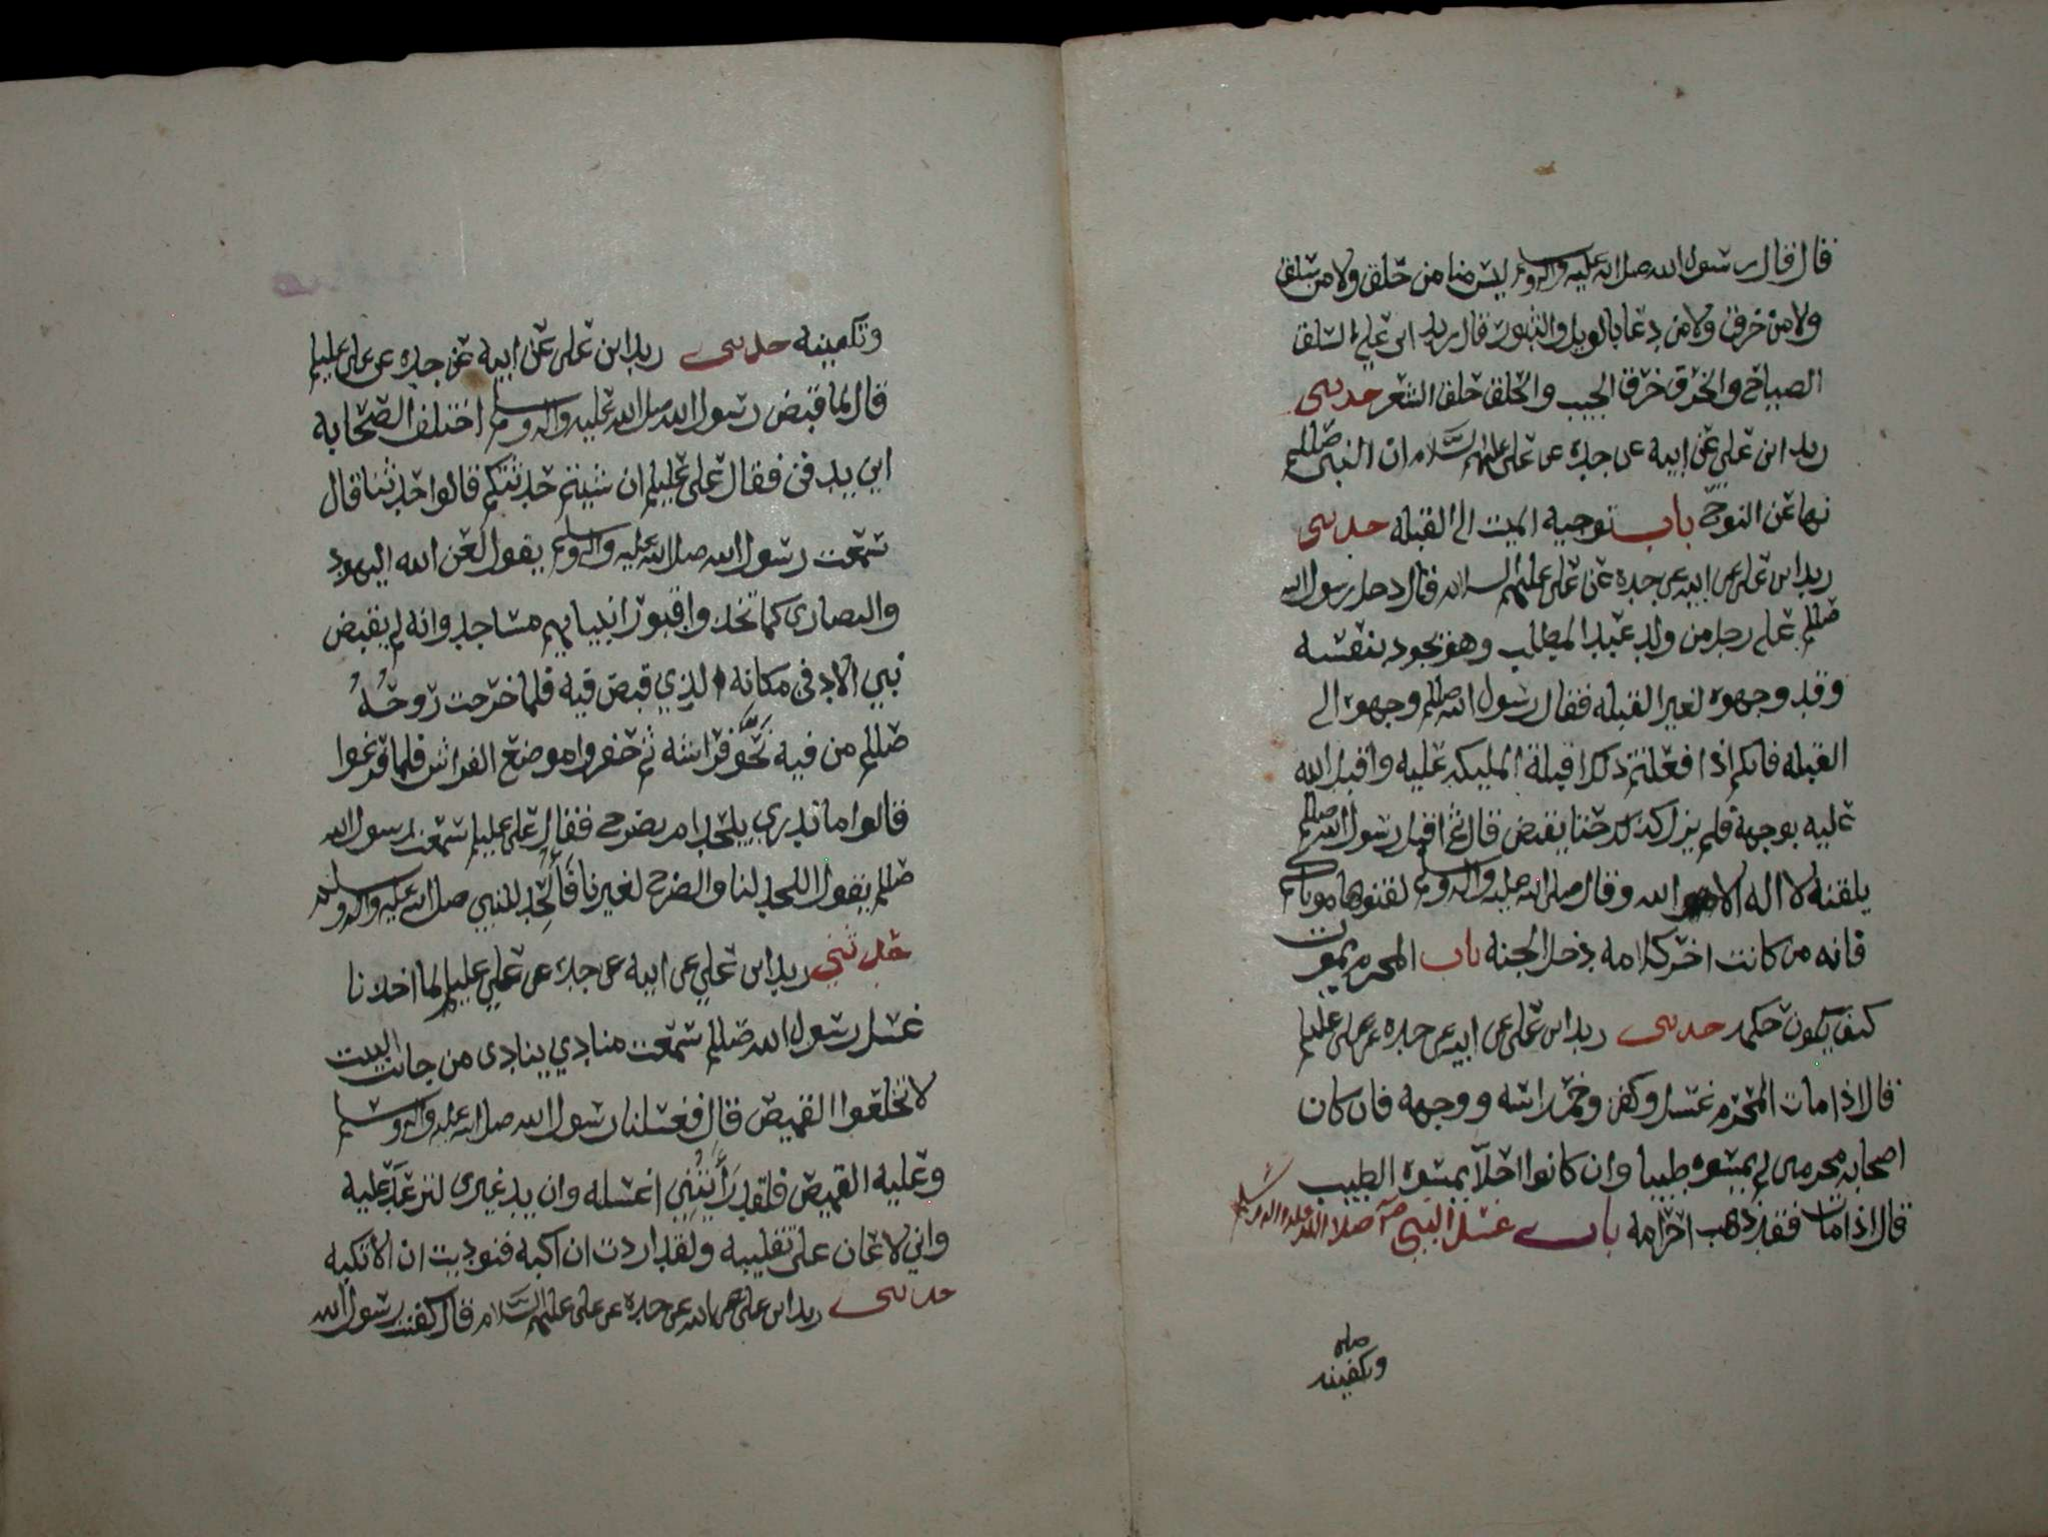 قال قال رسول الله صلى الله عليه واله وسلم ليس منا من حلق ولا من سلق
ولا من خرق ولا من دعا بالويل والثبور قال زيد ابن علي السلق
الصياح والخرق خرق الجيب والحلق حلق الشعر حدثنى
زيد ابن علي عن ابيه عن جده عن على عليهم السلام ان النبي صللم
نها عن النوح باب توجيه الميت الى القبلة حدثنى
زيد ابن على عن ابيه عن جده عن على عليهم السلام قال دخل رسول الله
صللم على رجل من ولد عبد المطلب وهو يجود بنفسه
وقد وجهوه لغير القبله فقال رسول الله صللم وجهوه الى
القبله فانكم اذا فعلتم ذلك اقبلة المليكه عليه واقبل الله
عليه بوجهه فلم يزل كذلك حتا يقبض قال ثم اقبل رسول الله صللم
يلقنه لا اله الا الله وقال صلى الله عليه واله وسلم لقنوها موتاكم
فانه من كانت اخر كلامه دخل الجنه باب المحرم يموت
كيف يكون حكمه حدثنى زيد ابن على عن ابيه عن جده عن على عليلم
قال اذا مات المحرم غسل وكفن وخمر راسه ووجهه فان كان
اصحابه محرمين لم يمسوه طيبا وان كانوا احلا يمسوه الطيب
قال اذا مات فقد ذهب احرامه باب غسل النبي صلا الله عليه واله وسلم
وتكفينه
وتكفينه حدثنى زيد ابن على عن ابيه عن جده عن على عليلم
قال لما قبض رسول الله صلى الله عليه واله وسلم اختلف الصحابه
اين يدفن فقال على عليلم ان شيتم حدثتكم قالوا حدثنا قال
سمعت رسول الله صلا الله عليه واله وسلم يقول لعن الله اليهود
والنصارى كما تخذوا قبور انبيايهم مساجد وانه لم يقبض
نبي الا دفن مكانه الذي قبض فيه فلما خرجت روحه
صللم من فيه نحو فراشه ثم حفروا موضع الفراش فلما فرغوا
قالوا ما ندري يلحد ام يضرح فقال على عليلم سمعت رسول الله
صللم يقول اللحد لنا والضرح لغيرنا فالحد للنبي صلى الله عليه واله وسلم
حدثني زيد ابن علي عن ابيه عن جده عن علي عليلم لما اخذنا
غسل رسول الله صللم سمعت منادي ينادى من جانب البيت
لا تخلعوا القميص قال فغسلنا رسول الله صلى الله عليه واله وسلم
وعليه القميص فلقد رأيتني اغسله وان يد غيرى لترعد عليه
واني لاعان على تقليبه ولقد اردت ان اكبه فنوديت ان لا تكبه
حدثنى زيد ابن على عن ابيه عن جده عن على عليهم السلام قال كفنت رسول الله